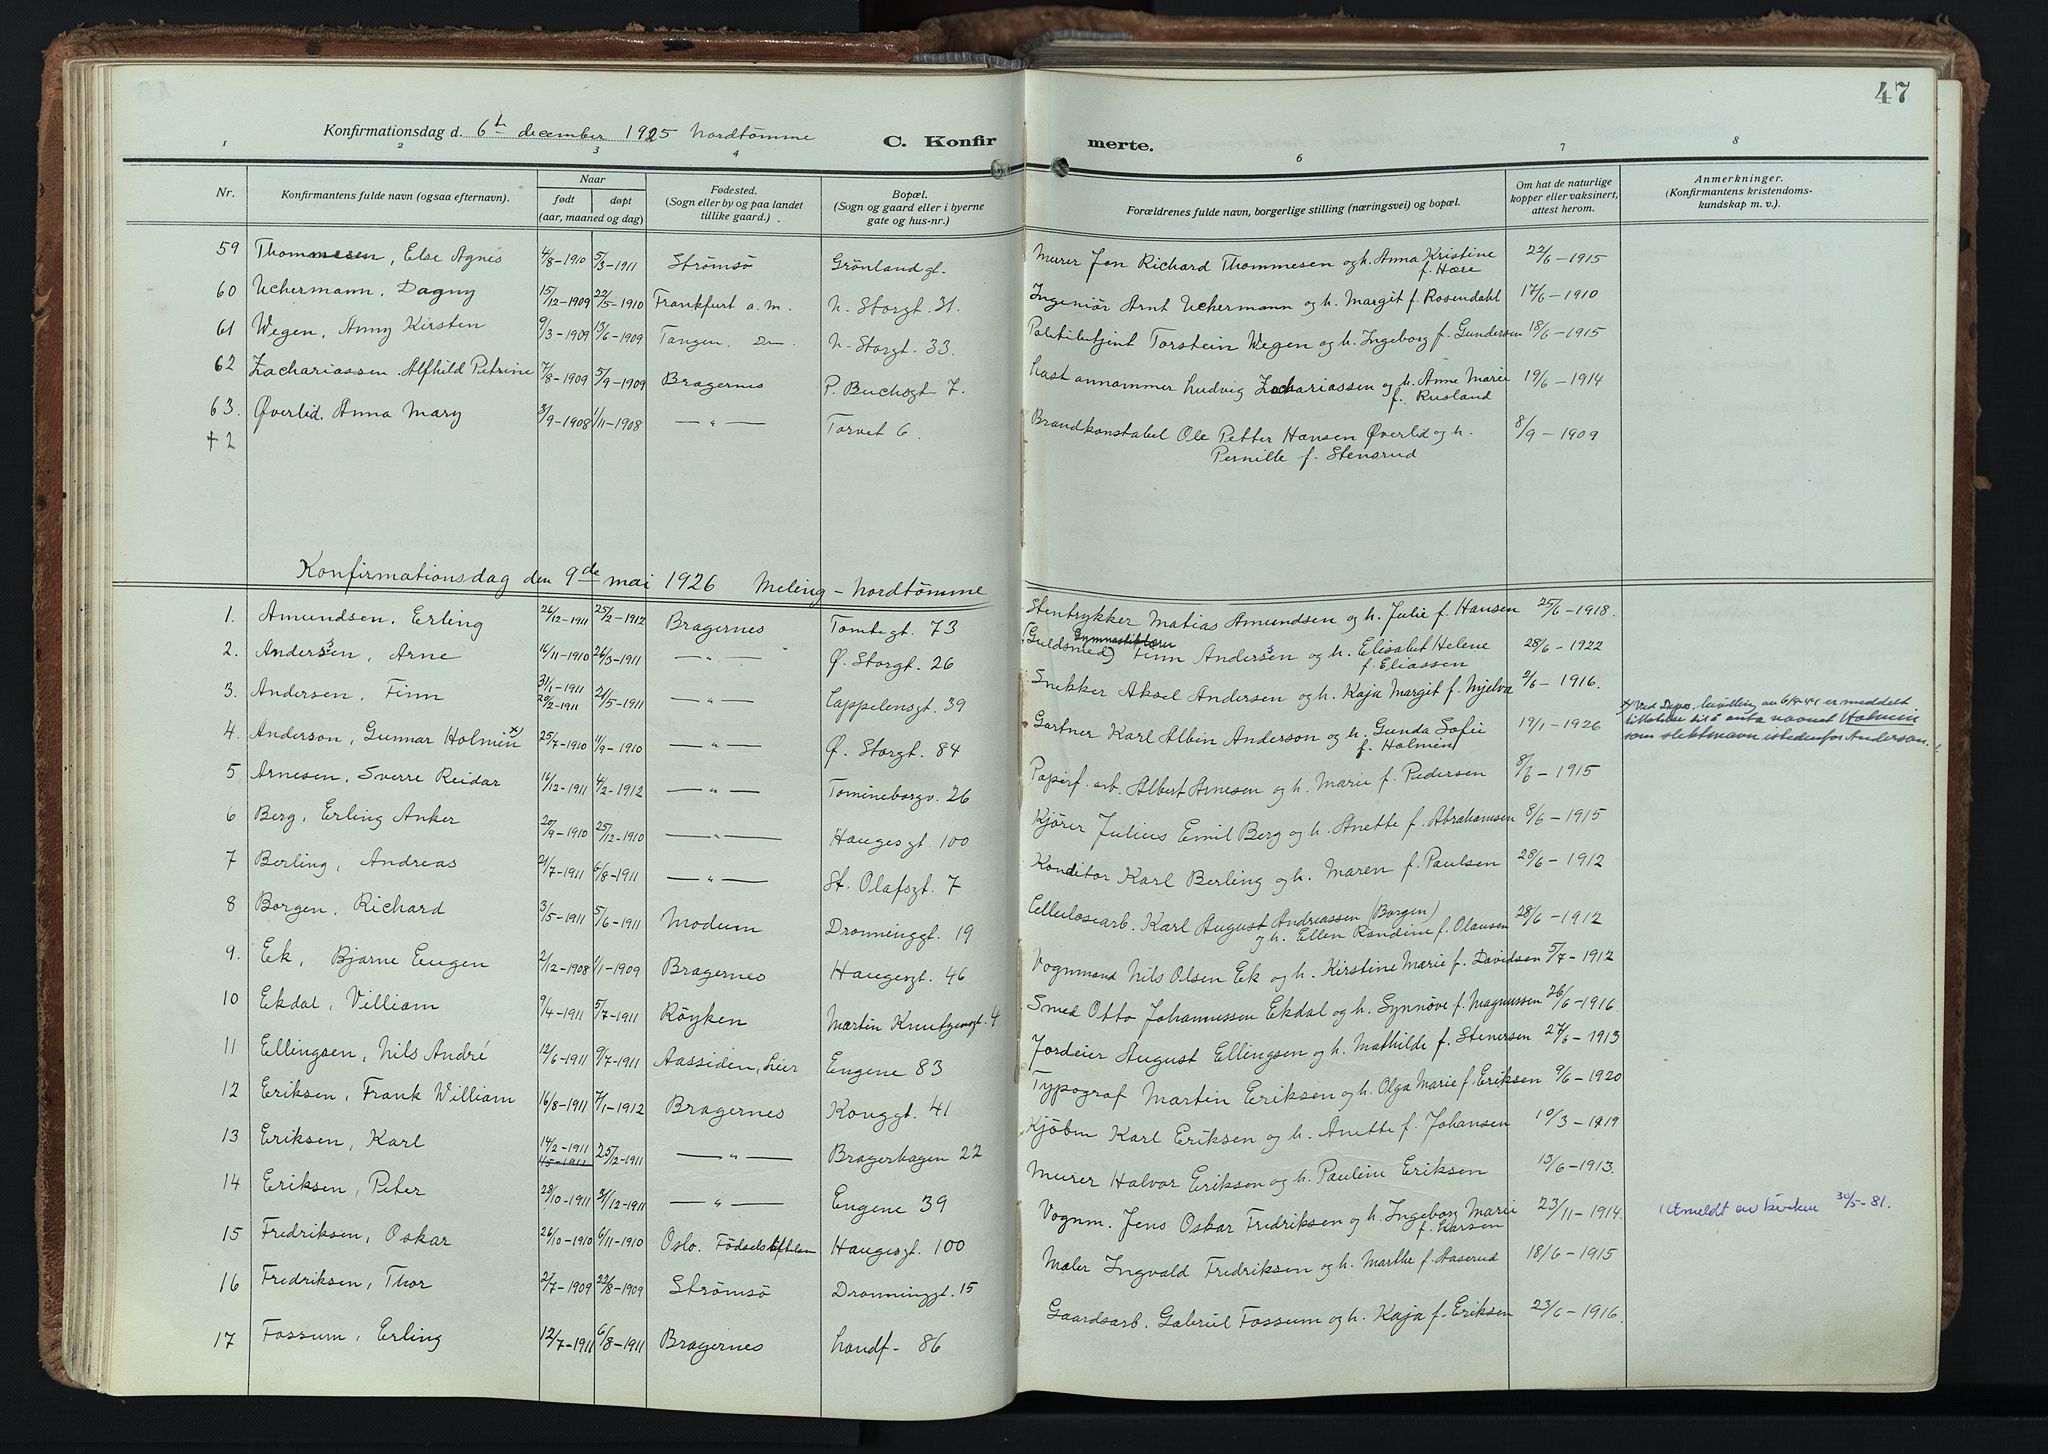 47
Konfirmationsdag d. 6te december 1925 Nordtømme
C. Konfirmerte.
1 2 3 4 6 7 8
Nr. Konfirmantens fulde navn (ogsaa efternavn). Naar født døpt (aar, maaned og dag) Fødested. (Sogn eller by og paa landet tillike gaard.) Bopæl. (Sogn og gaard eller i byerne gate og hus-nr.) Forældrenes fulde navn, borgerlige stilling (næringsvei) og bopæl. Om hat de naturlige kopper eller vaksinert, attest herom. Anmerkninger. (Konfirmantens kristendoms-kundskap m. v.).
59 Thommesen, Else Agnes 4/8-1910 5/3-1911 Strømsø Grønland gt. Murer Jon Richard Thommesen og h. Anna Kristine f. Hære 22/6-1915
60 Uchermann, Dagny 15/12-1909 22/5-1910 Frankfurt a. m. N. Storgt. 31. Ingeniør Arnt Uchermann og h. Margit f. Rosendahl 17/6-1910
61 Wegen, Anny Kirsten 9/3-1909 13/6-1909 Tangen, Dm N. Storgt. 33. Politibetjent Torstein Wegen og h. Ingeborg f. Gundersen 18/6-1915
62 Zachariassen, Alfhild Petrine 7/8-1909 5/9-1909 Bragernes P. Buchsgt 7. Lastannammer Ludvig Zachariassen og h. Anne Marie f. Rusland 19/6-1914
63. Øverlid, Anna Mary 3/9-1908 1/11-1908 — " — Torvet 6. Brandkonstabel Ole Petter Hansen Øverlid og h. Pernille f. Stensrud 8/9-1909
+ 2
Konfirmationsdag den 9de mai 1926 Meling - Nordtømme
1. Amundsen, Erling 26/12-1911 25/2-1912 Bragernes Tomtegt. 73 Stentrykker Matias Amundsen og h. Julie f. Hansen 25/6-1918.
2. Anderssen, Arne 16/11-1910 26/3-1911 — " — Ø. Storgt. 26 (Guldsmed) Gymnastiklærer Finn Anderssen og h. Elisabet Helene f. Eliassen 28/6-1922
3. Andersen, Finn 31/1-1911 20/2-1911 21/5-1911 — " — Cappelensgt. 39 Snekker Aksel Andersen og h. Kaja Margit f. Mjelva 2/6-1916.
4. Anderson, Gunnar Holmen x) 25/7-1910 11/9-1910 — " — Ø. Storgt. 84 Gartner Karl Albin Anderson og h. Gunda Sofie f. Holmen 19/1-1926
x) Ved Depos. bevilling av 6/4-44 er meddelt
tillatelse til å anta navnet Holmen
som slektsnavn istedenfor Anderson.
5 Arnesen, Sverre Reidar 16/12-1911 4/2-1912 — " — Tomineborgv. 26 Papirf. arb. Albert Arnesen og h. Marie f. Pedersen 8/6-1915
6 Berg, Erling Anker 20/9-1910 25/12-1910 — " — Haugesgt. 100 Kjører Julius Emil Berg og h. Anette f. Abrahamsen 8/6-1915
7 Berling, Andreas 21/7-1911 6/8-1911 — " — St. Olafsgt. 7 Konditor Karl Berling og h. Maren f. Paulsen 28/6-1912
8 Borgen, Richard 3/5-1911 5/6-1911 Modum Dronninggt. 19 Cellulosearb. Karl August Andreassen (Borgen) og h. Ellen Randine f. Olausen 28/6-1912
9. Ek, Bjarne Eugen 2/12-1908 1/1-1909 Bragernes Haugesgt. 46 Vognmand Nils Olsen Ek og h. Kirstine Marie f. Davidsen 5/7-1912
10 Ekdal, Villiam 9/4-1911 5/7-1911 Røyken Martin Knutzensgt. 4 Smed Otto Johannessen Ekdal og h. Synnøve f. Magnussen 26/6-1916.
11 Ellingsen, Nils André 12/6-1911 9/7-1911 Aassiden, Lier Eugene 83 Jordeier August Ellingsen og h. Mathilde f. Stenersen 27/6-1913
12 Eriksen, Frank William 16/8-1911 7/1-1912 Bragernes Konggt. 41 Typograf Martin Eriksen og h. Olga Marie f. Eriksen 9/6-1920
13 Eriksen, Karl 14/2-1911 25/12-1911 — " — Bragerhagen 22 Kjøbm Karl Eriksen og h. Anette f. Johansen 10/3-1919
14 Eriksen, Peter 28/10-1911 31/12-1911 — " — Eugene 39 Murer Halvor Eriksen og h. Pauline Eriksen 13/6-1913.
15 Fredriksen, Oskar 26/10-1910 6/11-1910 Oslo. Fødselsstiftelsen Haugesgt. 100 Vognm. Jens Oskar Fredriksen og h. Ingeborg Marie f. Larsen 23/11-1914. Utmeldt av kirken 30/5-81.
16 Fredriksen, Thor 27/7-1909 22/8-1909 Strømsø Dronninggt. 15 Maler Ingvald Fredriksen og h. Marthe f. Aaserud 18/6-1915
17 Fossum, Erling 12/7-1911 6/8-1911 Bragernes Landf- 86 Gaardsarb. Gabriel Fossum og h. Kaja f. Eriksen 23/6-1916.